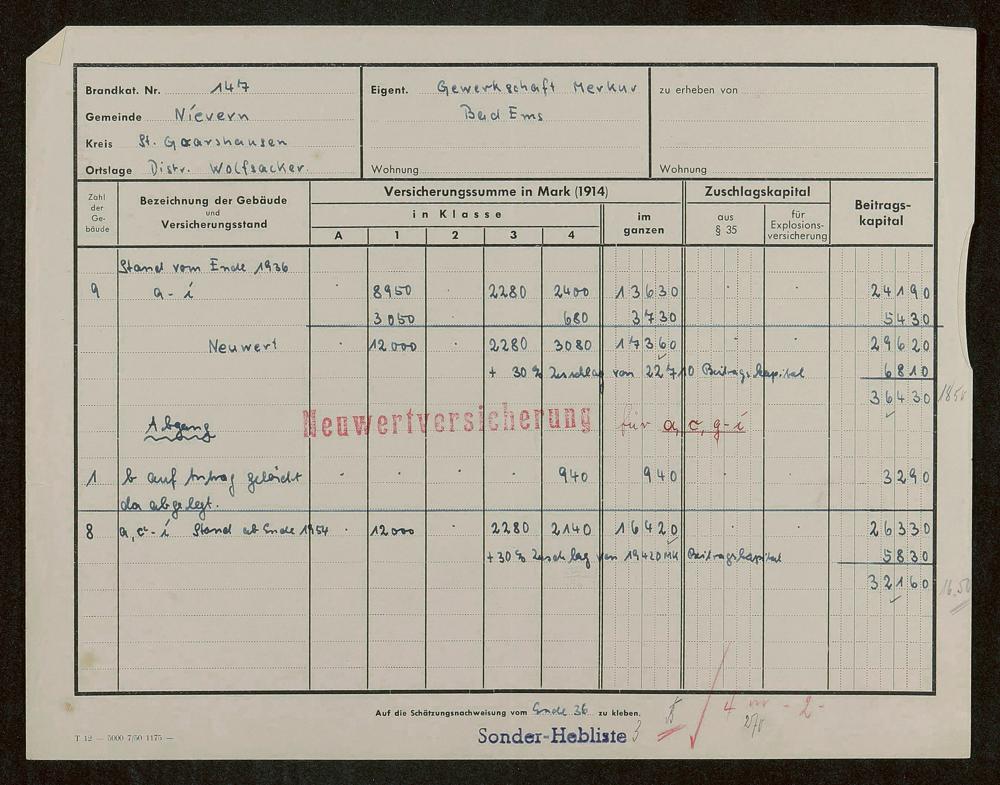 Brandkat. Nr. 147
Gemeinde Nievern
Kreis St. Goarshausen
Ortslage Distr. Wolfsacker.
Eigent. Gewerkschaft Merkur
Bad Ems
Wohnung
zu erheben von
Wohnung
Zahl der Ge-bäude
Bezeichnung der Gebäude
und
Versicherungsstand
Versicherungssumme in Mark (1914)
in Klasse
A 1 2 3 4
im ganzen
Zuschlagskapital
aus § 35
für Explosions-versicherung
Beitrags-kapital
Stand vom Ende 1936
9 a - i 8950 2280 2400 13630 24190
3050 680 3730 5430
Neuwert 12000 2280 3080 17360 29620
+ 30 % Zuschlag von 22710 Beitragskapital 6810
36430
Neuwertversicherung für a, c, g-i
Abgang
1 b auf Antrag gelöscht 940 940 3290
da abgelegt.
8 a, c - i Stand ab Ende 1954 12000 2280 2140 16420 26330
+ 30 % Zuschlag von 19420 MK Beitragskapital 5830
32160 16.50
Auf die Schätzungsnachweisung vom Ende 36 zu kleben.
Sonder-Hebliste
T 12 — 5000 7/50 1175 —